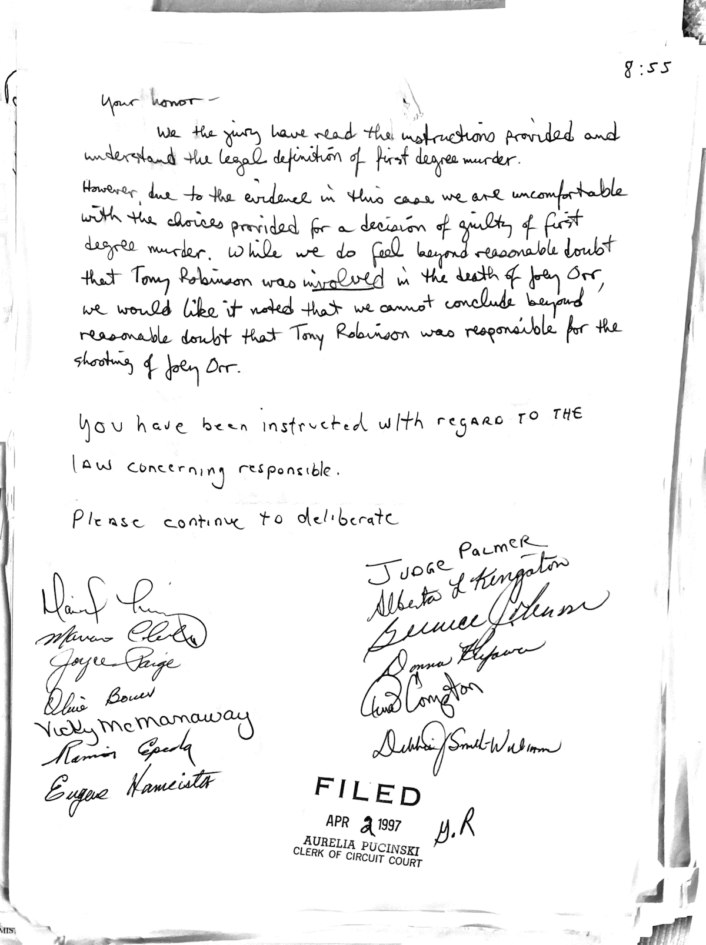 8:55
Your honor -
We the jury have read the instructions provided and
understand the legal definition of first degree murder.
However, due to the evidence in this case we are uncomfortable
with the choices provided for a decision of guilty of first
degree murder. While we do feel beyond reasonable doubt
that Tony Robinson was involved in the death of Joey Orr,
we would like it noted that we cannot conclude beyond
reasonable doubt that Tony Robinson was responsible for the
shooting of Joey Orr.
You have been instructed with regard to the
law concerning responsible.
Please continue to deliberate
Judge Palmer
Alberta L Kengaton
Bernice
Donna
Compton
Debbie J Smith-
Joyce Paige
Olivie Bower
Vicky McManaway
Ramon Cepeda
Eugene Hameister
FILED
APR 2 1997
G.R
AURELIA PUCINSKI
CLERK OF CIRCUIT COURT